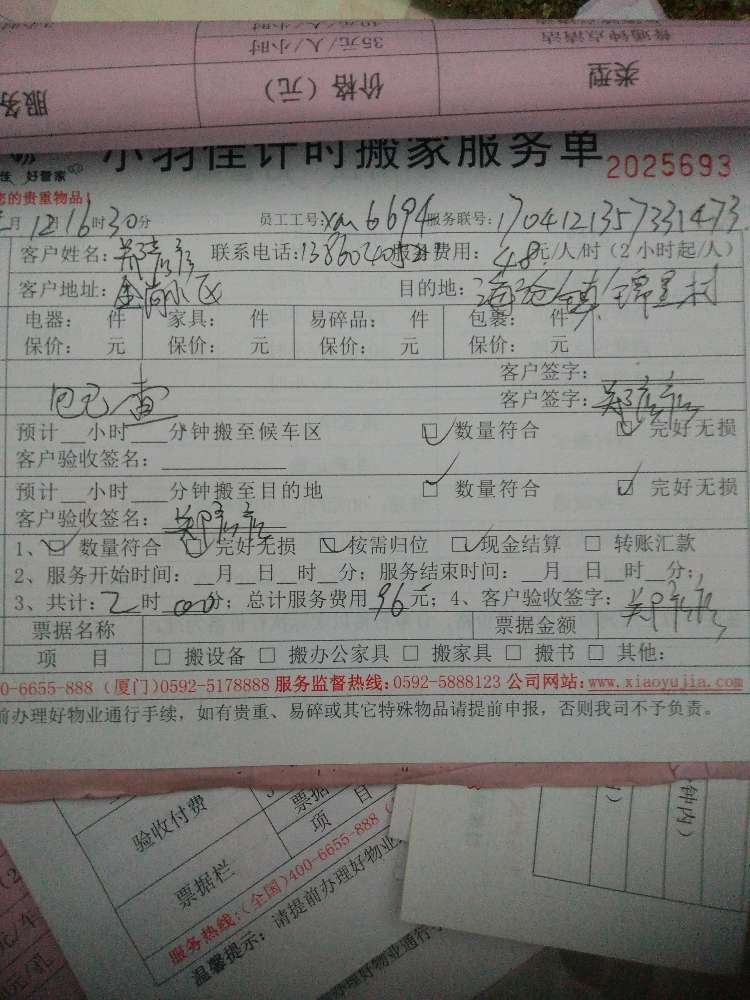 普通钟点清洁
35元/人/小时
类型
价格（元）
服务
小羽佳计时搬家服务单
2025693
佳 好管家
您的贵重物品！
月12日16时30分 员工工号：xm6694 服务联号：1704121357331473
客户姓名： 联系电话： 服务费用：48元/人/时（2小时起/人）
客户地址：金尚小区 目的地：海沧镇锦里村
电器： 件 家具： 件 易碎品： 件 包裹： 件
保价： 元 保价： 元 保价： 元 保价： 元
客户签字：
客户签字：
预计__小时___分钟搬至候车区 □数量符合 □完好无损
客户验收签名：
预计__小时___分钟搬至目的地 □数量符合 □完好无损
客户验收签名：
1、□数量符合 □完好无损 □按需归位 □现金结算 □转账汇款
2、服务开始时间：__月__日__时__分；服务结束时间：__月__日__时__分；
3、共计：2时00分；总计服务费用96元；4、客户验收签字：
票据名称 票据金额
项 目 □搬设备 □搬办公家具 □搬家具 □搬书 □其他：
0-6655-888（厦门）0592-5178888 服务监督热线：0592-5888123 公司网站：www.xiaoyujia.com
前办理好物业通行手续，如有贵重、易碎或其它特殊物品请提前申报，否则我司不予负责。
验收付费
票据
项 目
票据栏
服务热线：（全国）400-6655-888
温馨提示：请提前办理好物业
办理好物业通行
钟内）